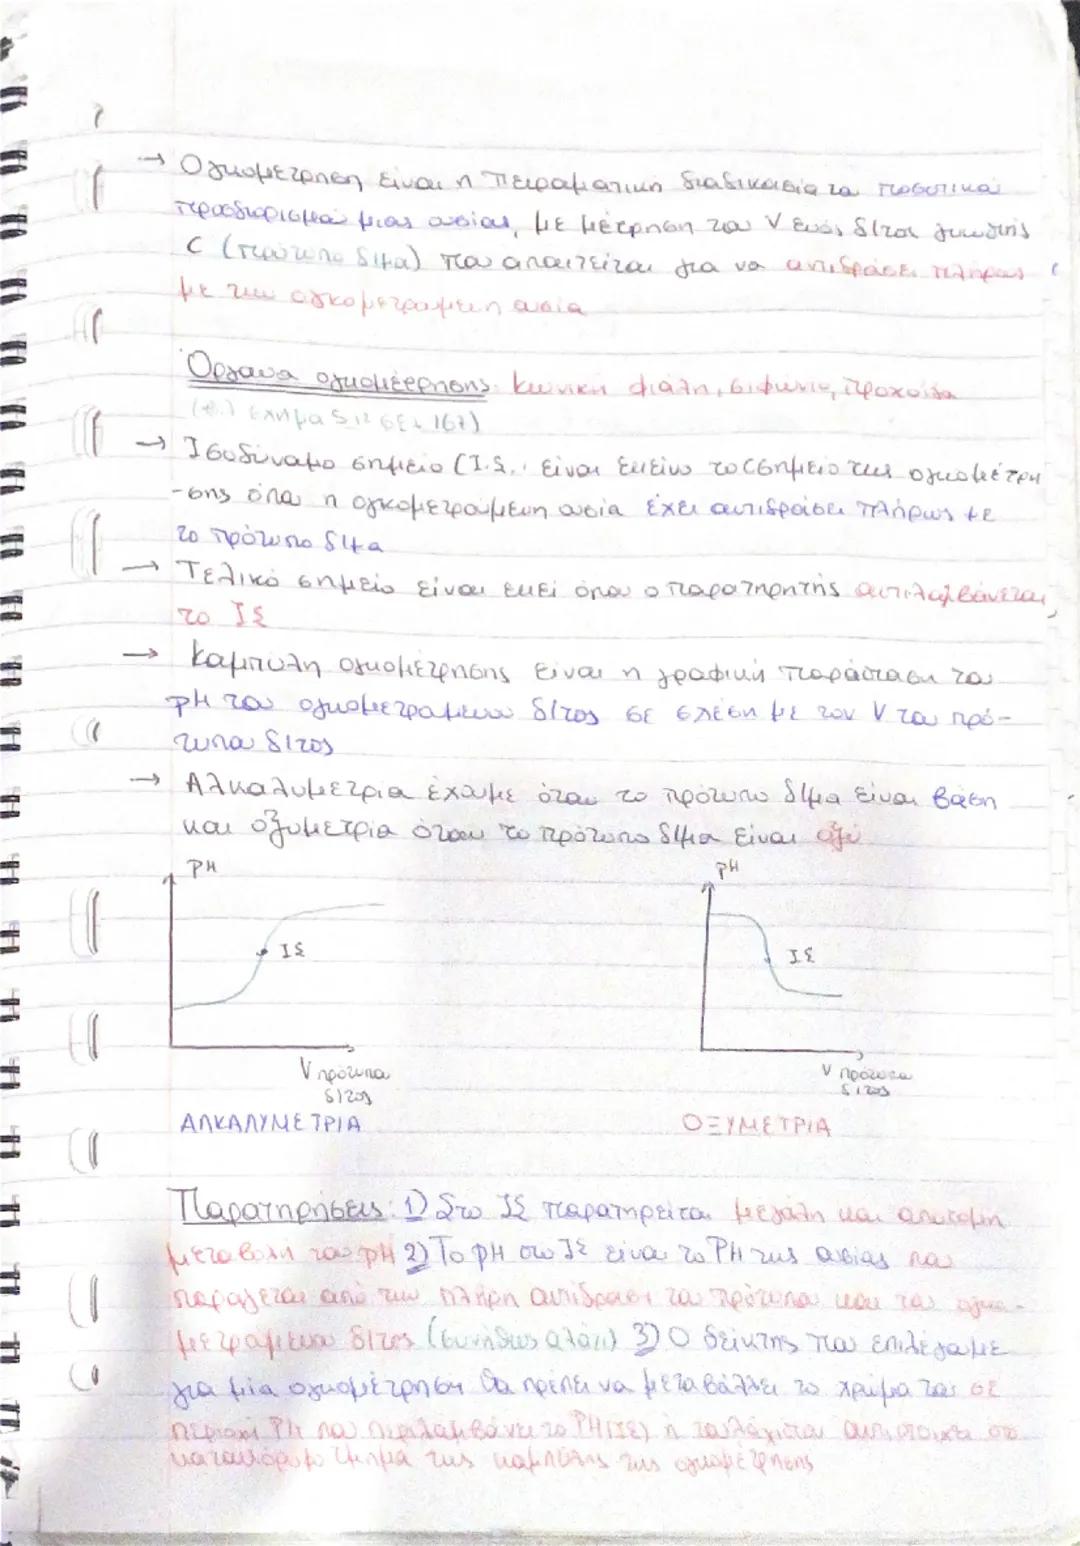 → Ογκομέτρηση είναι η πειραματική διαδικασία του ποσοτικού
προσδιορισμού μιας ουσίας, με μέτρηση του V ενός δ/τος γνωστής
C (πρότυπο δ/μα) που απαιτείται για να αντιδράσει πλήρως
με την ογκομετρούμενη ουσία
Όργανα ογκομέτρησης: κωνική φιάλη, σιφώνιο, προχοΐδα
(βλ. σχήμα 5.12 σελ 167)
→ Ισοδύναμο σημείο (Ι.Σ.: είναι εκείνο το σημείο της ογκομέτρη
-σης όπου η ογκομετρούμενη ουσία έχει αντιδράσει πλήρως με
το πρότυπο δ/μα
→ Τελικό σημείο είναι εκεί όπου ο παρατηρητής αντιλαμβάνεται
το ΙΣ
→ Καμπύλη ογκομέτρησης είναι η γραφική παράσταση του
pH του ογκομετρούμενου δ/τος σε σχέση με τον V του πρό-
τυπου δ/τος
→ Αλκαλυμετρία έχουμε όταν το πρότυπο δ/μα είναι βάση
και οξυμετρία όταν το πρότυπο δ/μα είναι οξύ
PH
ΙΣ
V πρότυπου
δ/τος
ΑΛΚΑΛΥΜΕΤΡΙΑ
PH
ΙΣ
V πρότυπου
δ/τος
ΟΞΥΜΕΤΡΙΑ
Παρατηρήσεις: 1) Στο ΙΣ παρατηρείται μεγάλη και απότομη
μεταβολή του pH 2) Το pH στο ΙΣ είναι το PH της ουσίας που
παράγεται από την πλήρη αντίδραση του πρότυπου και του ογκο-
μετρούμενου δ/τος (συνήθως αλάτι) 3) Ο δείκτης που επιλέγουμε
για μία ογκομέτρηση θα πρέπει να μεταβάλλει το χρώμα του σε
περιοχή PH που περιλαμβάνει το PH(ΙΣ) ή τουλάχιστον αντιστοιχεί στο
κατακόρυφο τμήμα της καμπύλης της ογκομέτρησης